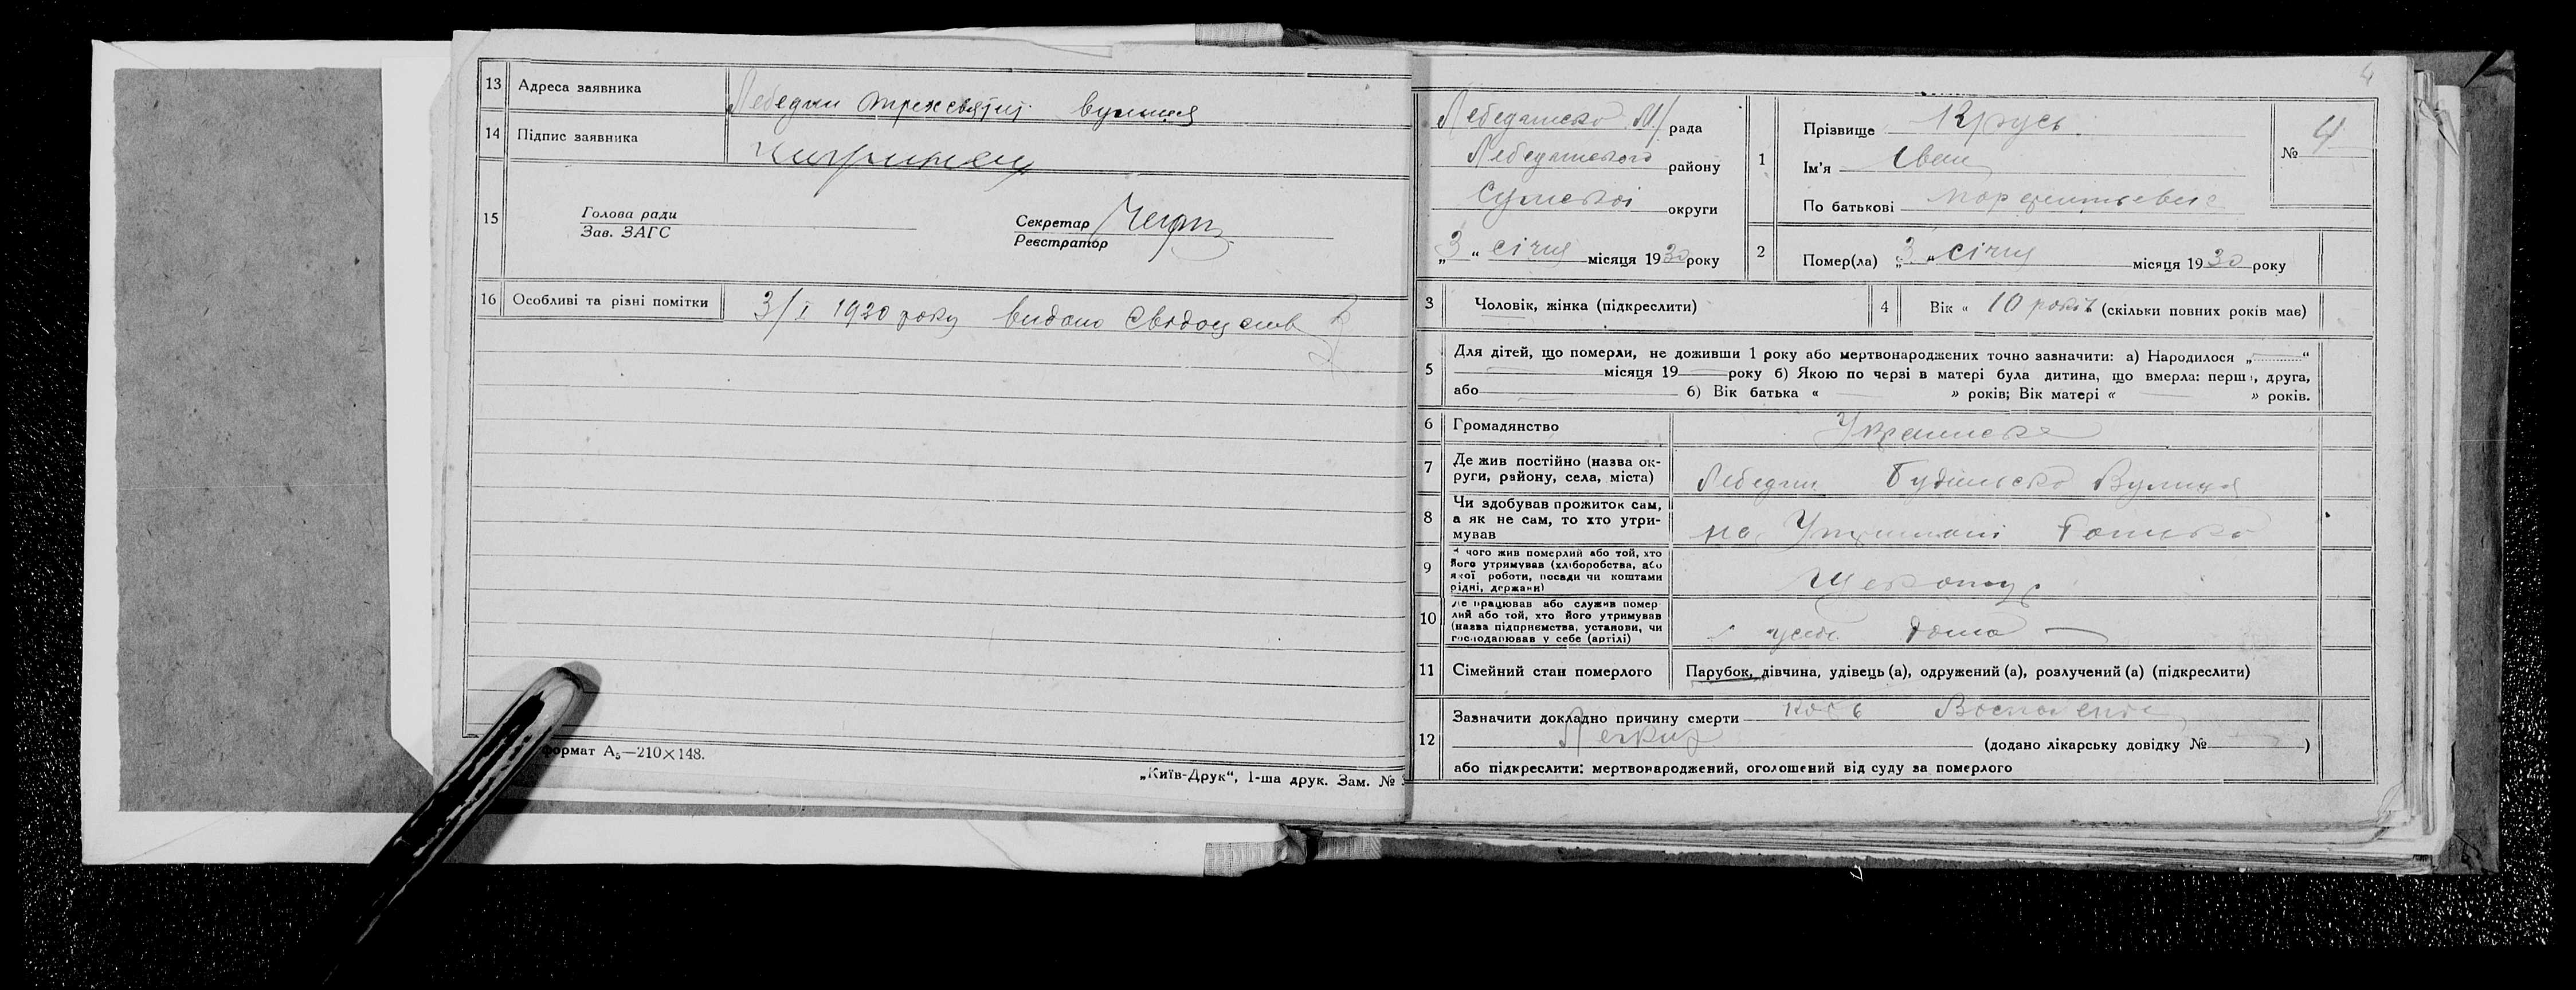 13 Адреса заявника Лебедин Трехсвятит. вулиця
14 Підпис заявника
15 Голова ради
Зав. ЗАГС
Секретар
Реєстратор
16 Особливі та різні помітки 3/I 1930 року видано свідоцтв
Формат А₅—210×148.
„Київ-Друк“, 1-ша друк. Зам. №
4
Лебединсько М/ рада
Лебединського району
Сумської округи
„3“ січня місяця 1930 року
1 Прізвище Крусь
Ім'я Іван
По батькові
№ 4
2 Помер(ла) „3“ січня місяця 1930 року
3 Чоловік, жінка (підкреслити)
4 Вік « 10 років (скільки повних років має)
5 Для дітей, що померли, не доживши 1 року або мертвонароджених точно зазначити: а) Народилося „ “
місяця 19 року б) Якою по черзі в матері була дитина, що вмерла: перша, друга,
або б) Вік батька « » років; Вік матері « » років.
6 Громадянство Украинське
7 Де жив постійно (назва ок-
руги, району, села, міста) Лебедин Будильська Вулиця
8 Чи здобував прожиток сам,
а як не сам, то хто утри-
мував на Утриманні Батька
9 З чого жив померлий або той, хто
його утримував (хліборобства, або
якої роботи, посади чи коштами
рідні, держави)
10 Де працював або служив помер-
лий або той, хто його утримував
(назва підприємства, установи, чи
господарював у себе (артілі) у себе дома
11 Сімейний стан померлого Парубок, дівчина, удівець (а), одружений (а), розлучений (а) (підкреслити)
12 Зазначити докладно причину смерти Воспаление
Легких (додано лікарську довідку № )
або підкреслити: мертвонароджений, оголошений від суду за померлого